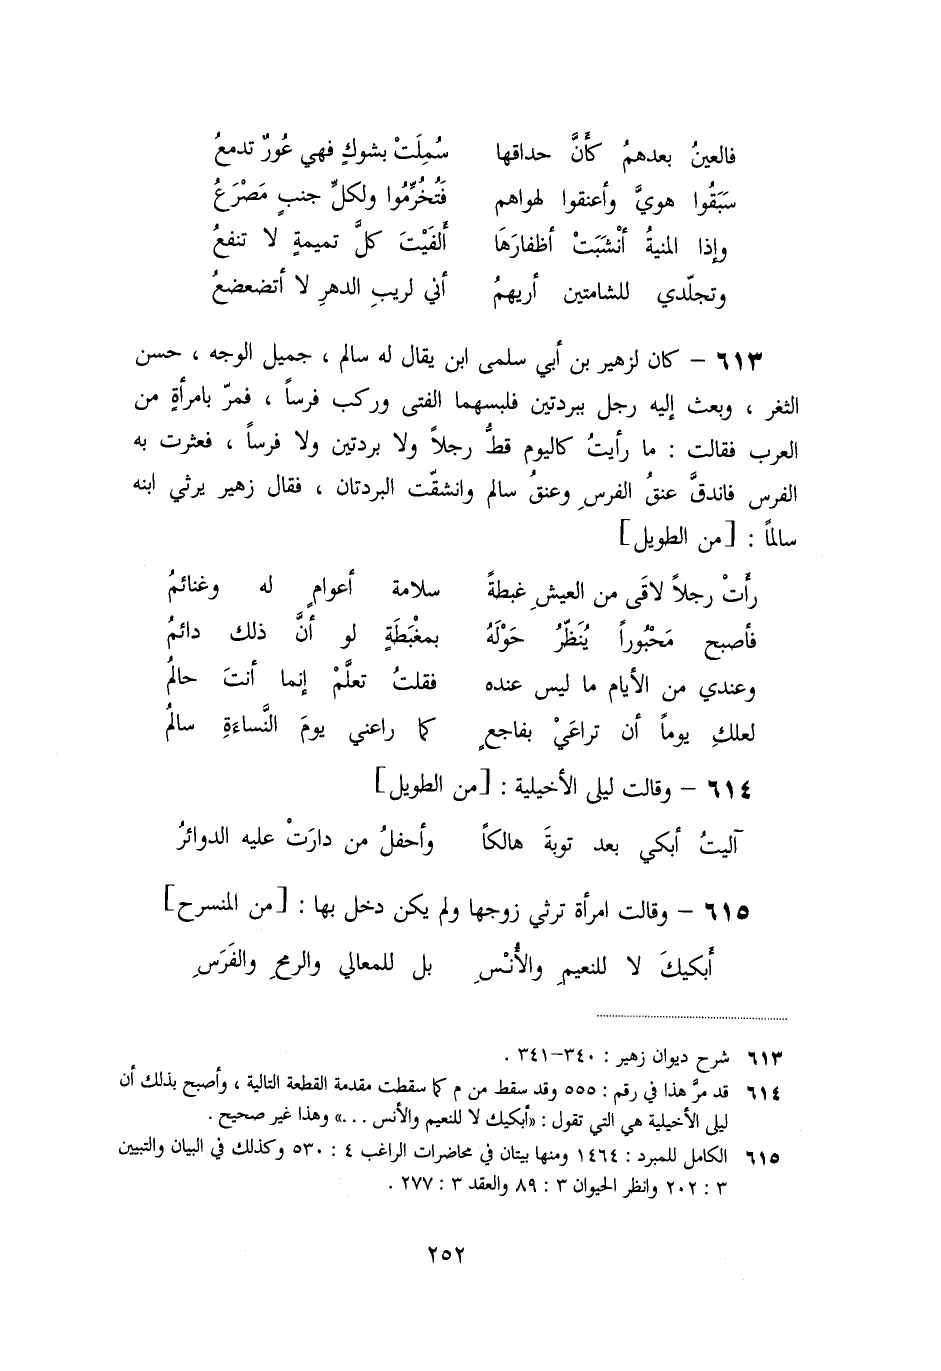 فالعينُ بعدهمُ كأَنَّ حداقها سُمِلَتْ بشوكٍ فهي عُورٌ تدمعُ
سَبَقُوا هويَّ وأعنقوا لهواهم فَتُخُرِّمُوا ولكلِّ جنبٍ مَصْرَعُ
وإذا المنيةُ أنْشَبَتْ أظفارَهَا ألفَيْتَ كلَّ تميمةٍ لا تنفعُ
وتجلّدي للشامتين أريهمُ أني لريبِ الدهرِ لا أتضعضعُ
٦١٣ – كان لزهير بن أبي سلمى ابن يقال له سالم ، جميل الوجه ، حسن
الثغر ، وبعث إليه رجل ببردتين فلبسهما الفتى وركب فرساً ، فمرّ بامرأةٍ من
العرب فقالت : ما رأيتُ كاليوم قطُّ رجلاً ولا بردتين ولا فرساً ، فعثرت به
الفرس فاندقَّ عنقُ الفرسِ وعنقُ سالم وانشقّت البردتان ، فقال زهير يرثي ابنه
سالماً : [من الطويل]
رأَتْ رجلاً لاقَى من العيشِ غبطةً سلامة أعوامٍ له وغنائمُ
فأصبح مَحْبُوراً يُنَظَّرُ حَوْلَهُ بمغْبَطَةٍ لو أنَّ ذلك دائمُ
وعندي من الأيام ما ليس عنده فقلتُ تعلَّمْ إنما أنتَ حالمُ
لعلكِ يوماً أن تراعَيْ بفاجعٍ كما راعني يومَ النَّساءَةِ سالمُ
٦١٤ – وقالت ليلى الأخيلية : [من الطويل]
آليتُ أبكي بعد توبةَ هالكاً وأحفلُ من دارَتْ عليه الدوائرُ
٦١٥ – وقالت امرأة ترثي زوجها ولم يكن دخل بها : [من المنسرح]
أَبكيكَ لا للنعيمِ والأُنْسِ بل للمعالي والرمحِ والفَرَسِ
٦١٣ شرح ديوان زهير : ٣٤٠–٣٤١ .
٦١٤ قد مرَّ هذا في رقم : ٥٥٥ وقد سقط من م كما سقطت مقدمة القطعة التالية ، وأصبح بذلك أن
ليلى الأخيلية هي التي تقول : «أبكيك لا للنعيم والأنس ...» وهذا غير صحيح .
٦١٥ الكامل للمبرد : ١٤٦٤ ومنها بيتان في محاضرات الراغب ٤ : ٥٣٠ وكذلك في البيان والتبيين
٣ : ٢٠٢ وانظر الحيوان ٣ : ٨٩ والعقد ٣ : ٢٧٧ .
٢٥٢